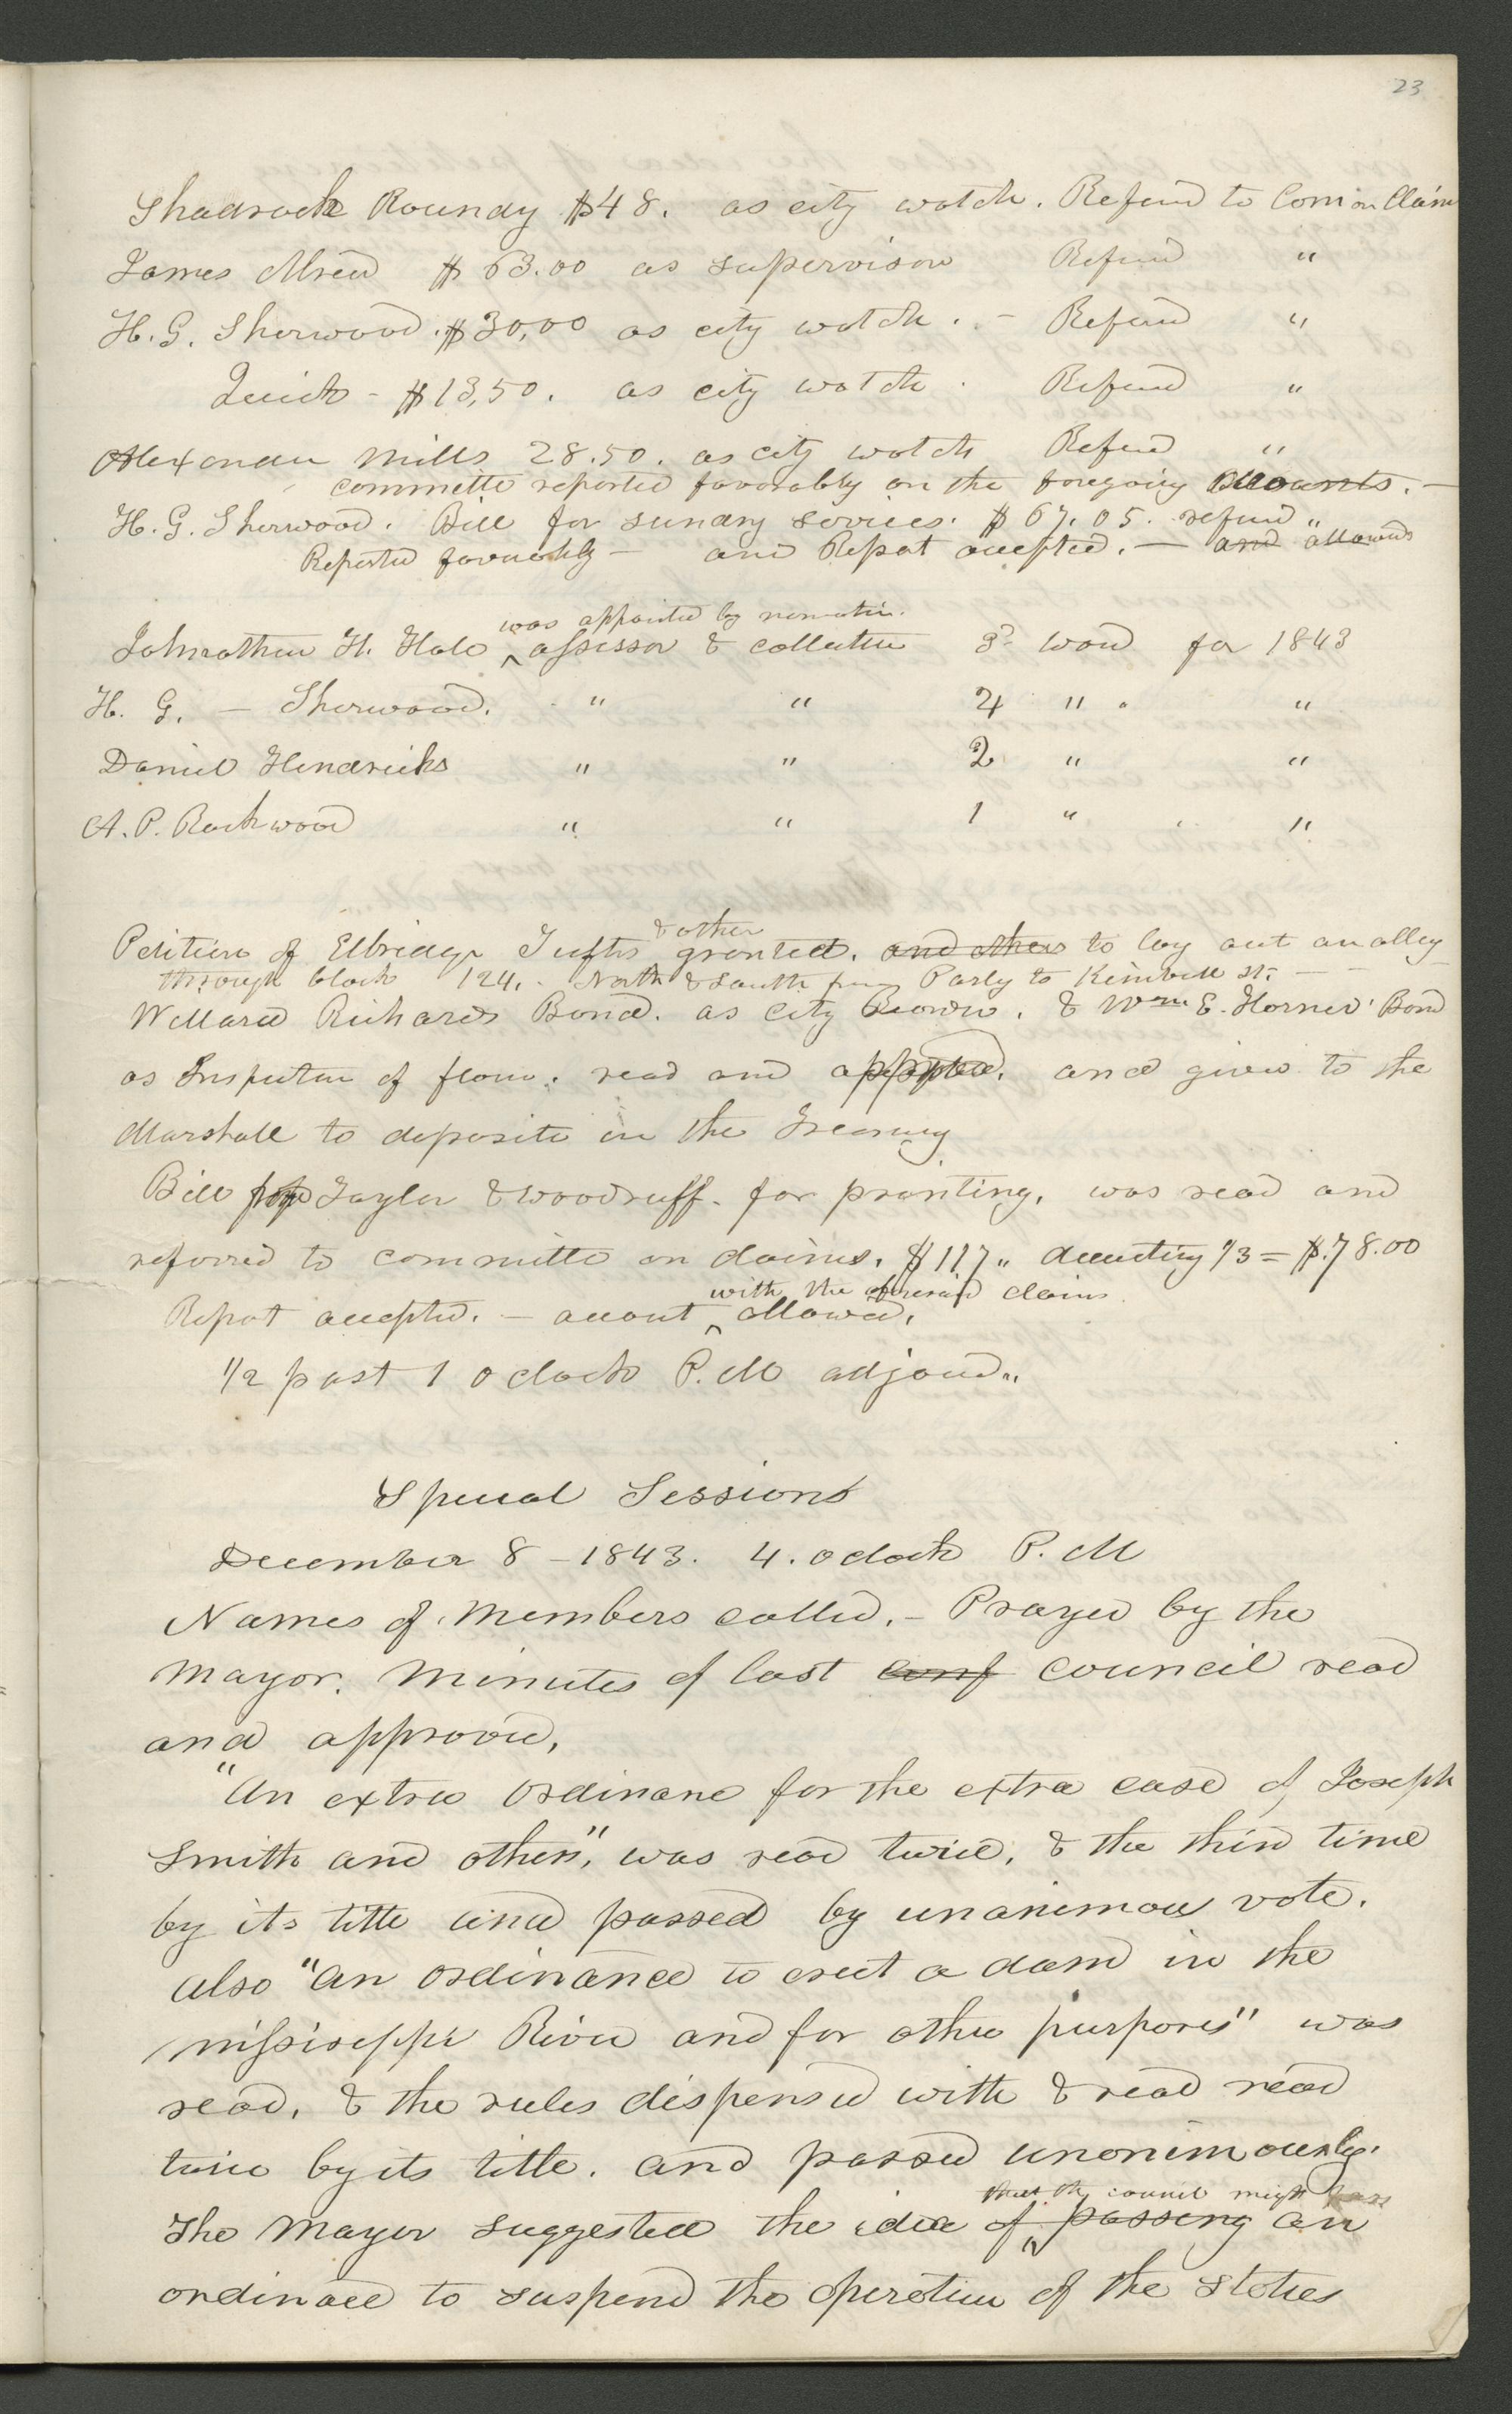 23
Shadrack Roundy $48. as city watch. Referd to Com on Claims
James Alred $63.00 as supervisor Referd "
H. G. Sherwood. $30,00 as city watch. - Referd "
Quick - $13,50. as city watch. Referd "
Alexander Mills 28.50. as city watch Referd "
committe reported favorably on the foregoing accounts. —
H. G. Sherwood. Bill for sundry services. $67.05. referd "
Reported favorably — and Report accepted. — and allowed
was appointed by nomatin.
Johnathan H. Hale ^ assessor & collector 3d ward for 1843
H. G. — Sherwood. " " 4 " . "
Daniel Hendricks " " 2 " "
A. P. Rockwood " " 1 " "
& other
Petition of Elbridge Tufts granted. and others to lay out an alley
through block 124. - North & South from Parly to Kimball St. — —
Willard Richards Bond. as City Recorder. & Wm E. Horner' Bond
as Inspector of flour. read and and given to the
Marshall to deposite in the Treasury
Bill Taylor & Woodruff. for printing, was read and
referred to committe on claims. $117 " deducting 1/3 = $.78.00
with the aforesaid claims
Report accepted. — account ^ allowed.
1/2 past 1 oclock P.M adjourd "
Special Session
December 8 - 1843. 4. oclock P.M
Names of Members called. - Prayer by the
Mayor. Minutes of last conf council read
and approved,
"An extra Ordinance for the extra case of Joseph
Smith and others", was read twice, & the third time
by its title and passed by unanimous vote.
also "an Ordinance to erect a dam in the
mississeppi River and for other purposes" was
read, & the rules dispensed with & read read
twice by its title. and passed unanimously.
that the council might pass
The Mayor suggested the idea of ^ passing an
ordinace to suspend the operation of the Statues